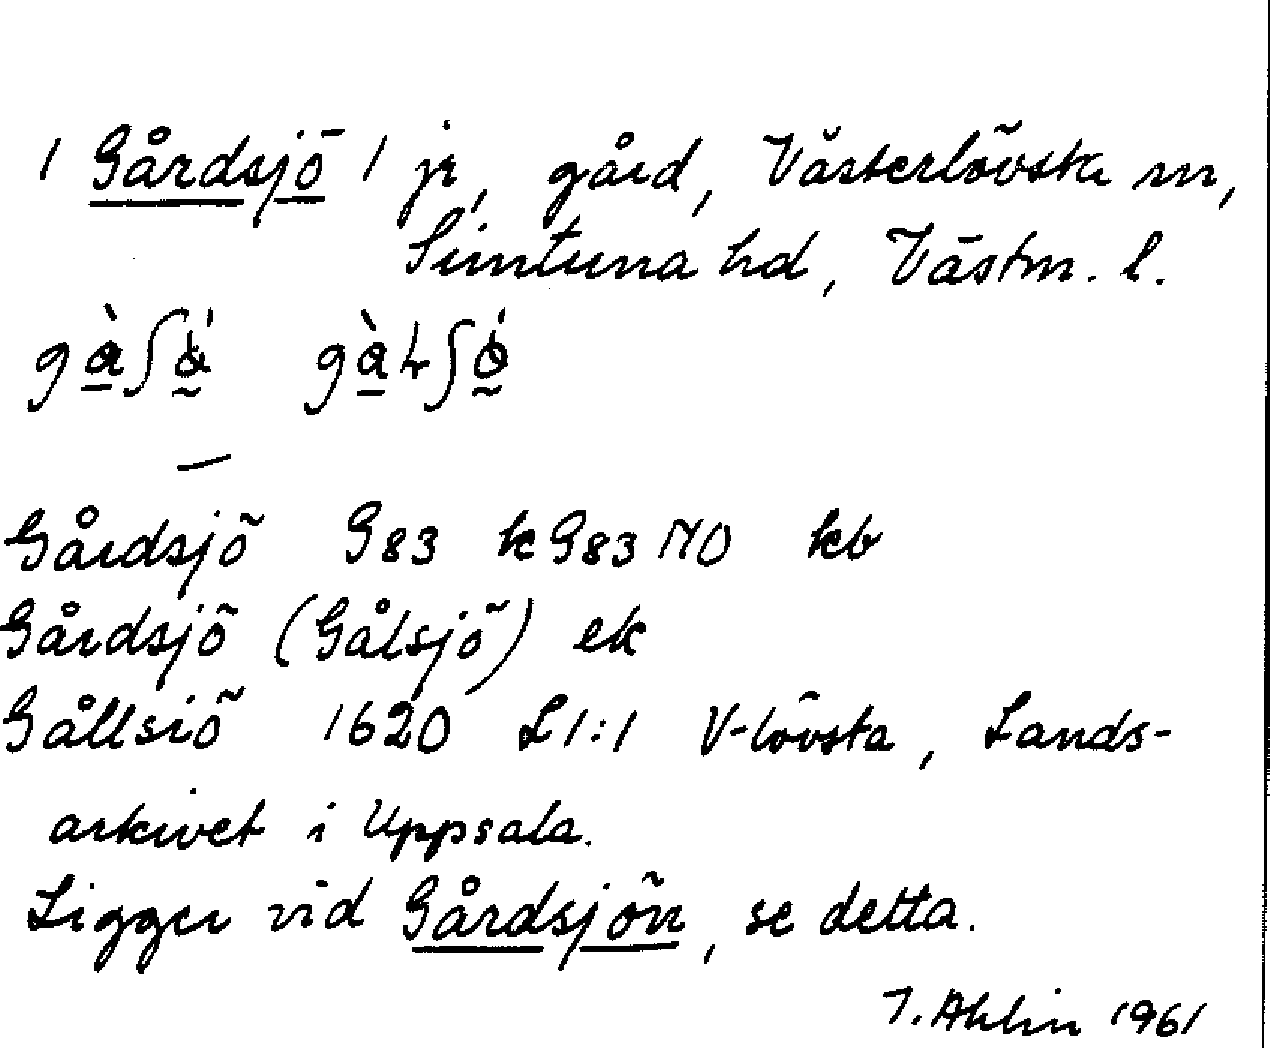 / Gårdsjö / jr, gård, Västerlövsta sn,
Simtuna hd, Västm. l.
Gårdsjö G83 kG83NO kb
Gårdsjö (Gålsjö) ek
Gållsiö 1620 L1:1 V-lövsta, Lands-
arkivet i Uppsala.
Ligger vid Gårdsjön, se detta.
T. Ahlin 1961